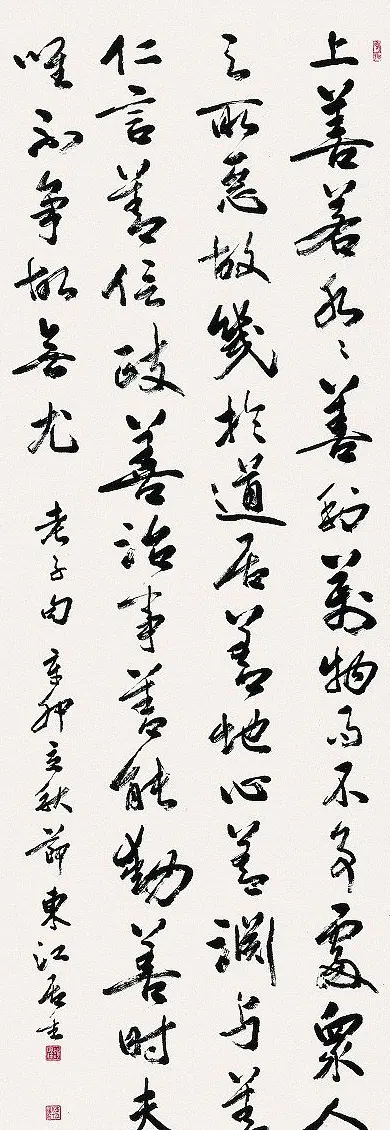 上善若水〻善利萬物而不爭處衆人
之所惡故幾於道居善地心善淵與善
仁言善信政善治事善能動善時夫
唯不爭故無尤 老子句 辛卯立秋節東江居